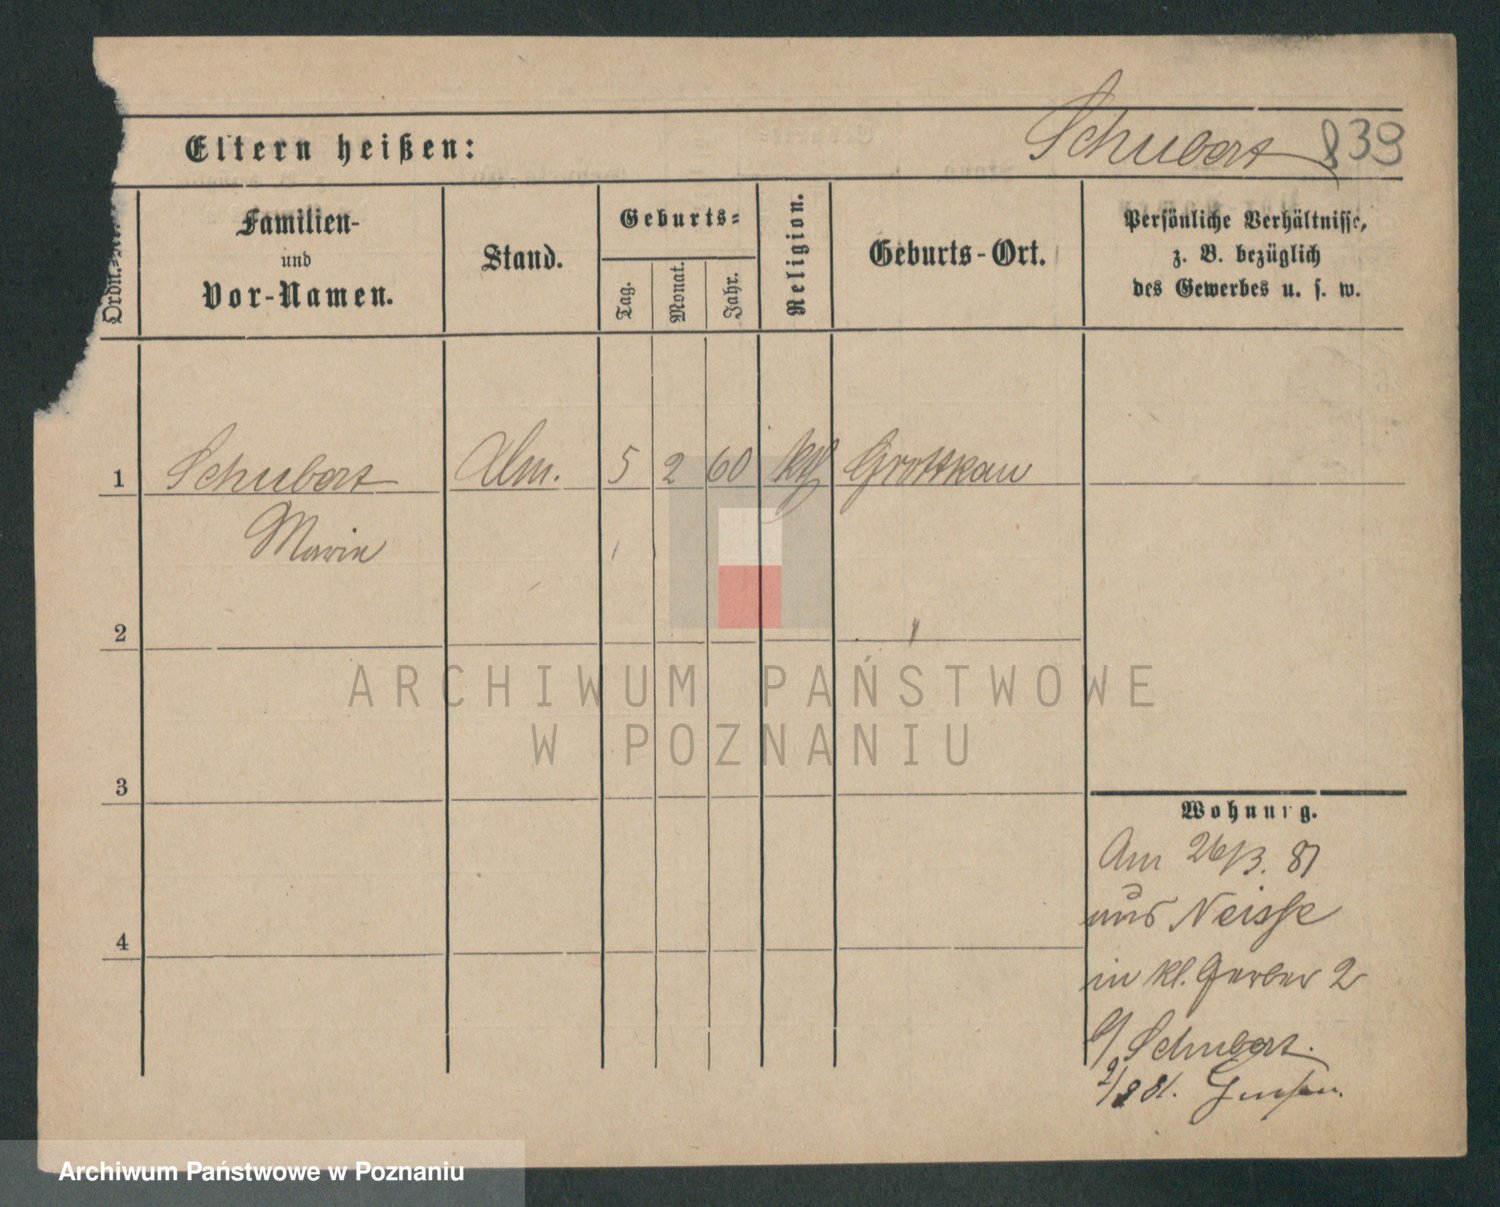 Schubert 839
Eltern heißen:
Ordn.-Nr.
Familien-
und
Vor-Namen.
Stand.
Geburts-
Tag.
Monat.
Jahr.
Religion.
Geburts-Ort.
Persönliche Verhältnisse,
z. B. bezüglich
des Gewerbes u. s. w.
1 Schubert 5 2 60 kth Grottkau
Marie
2
3
4
Wohnung.
Am 26/3. 81
aus Neisse
in kl. Gerber 2
b/ Schubert.
2/8 81.
ARCHIWUM PAŃSTWOWE
W POZNANIU
Archiwum Państwowe w Poznaniu